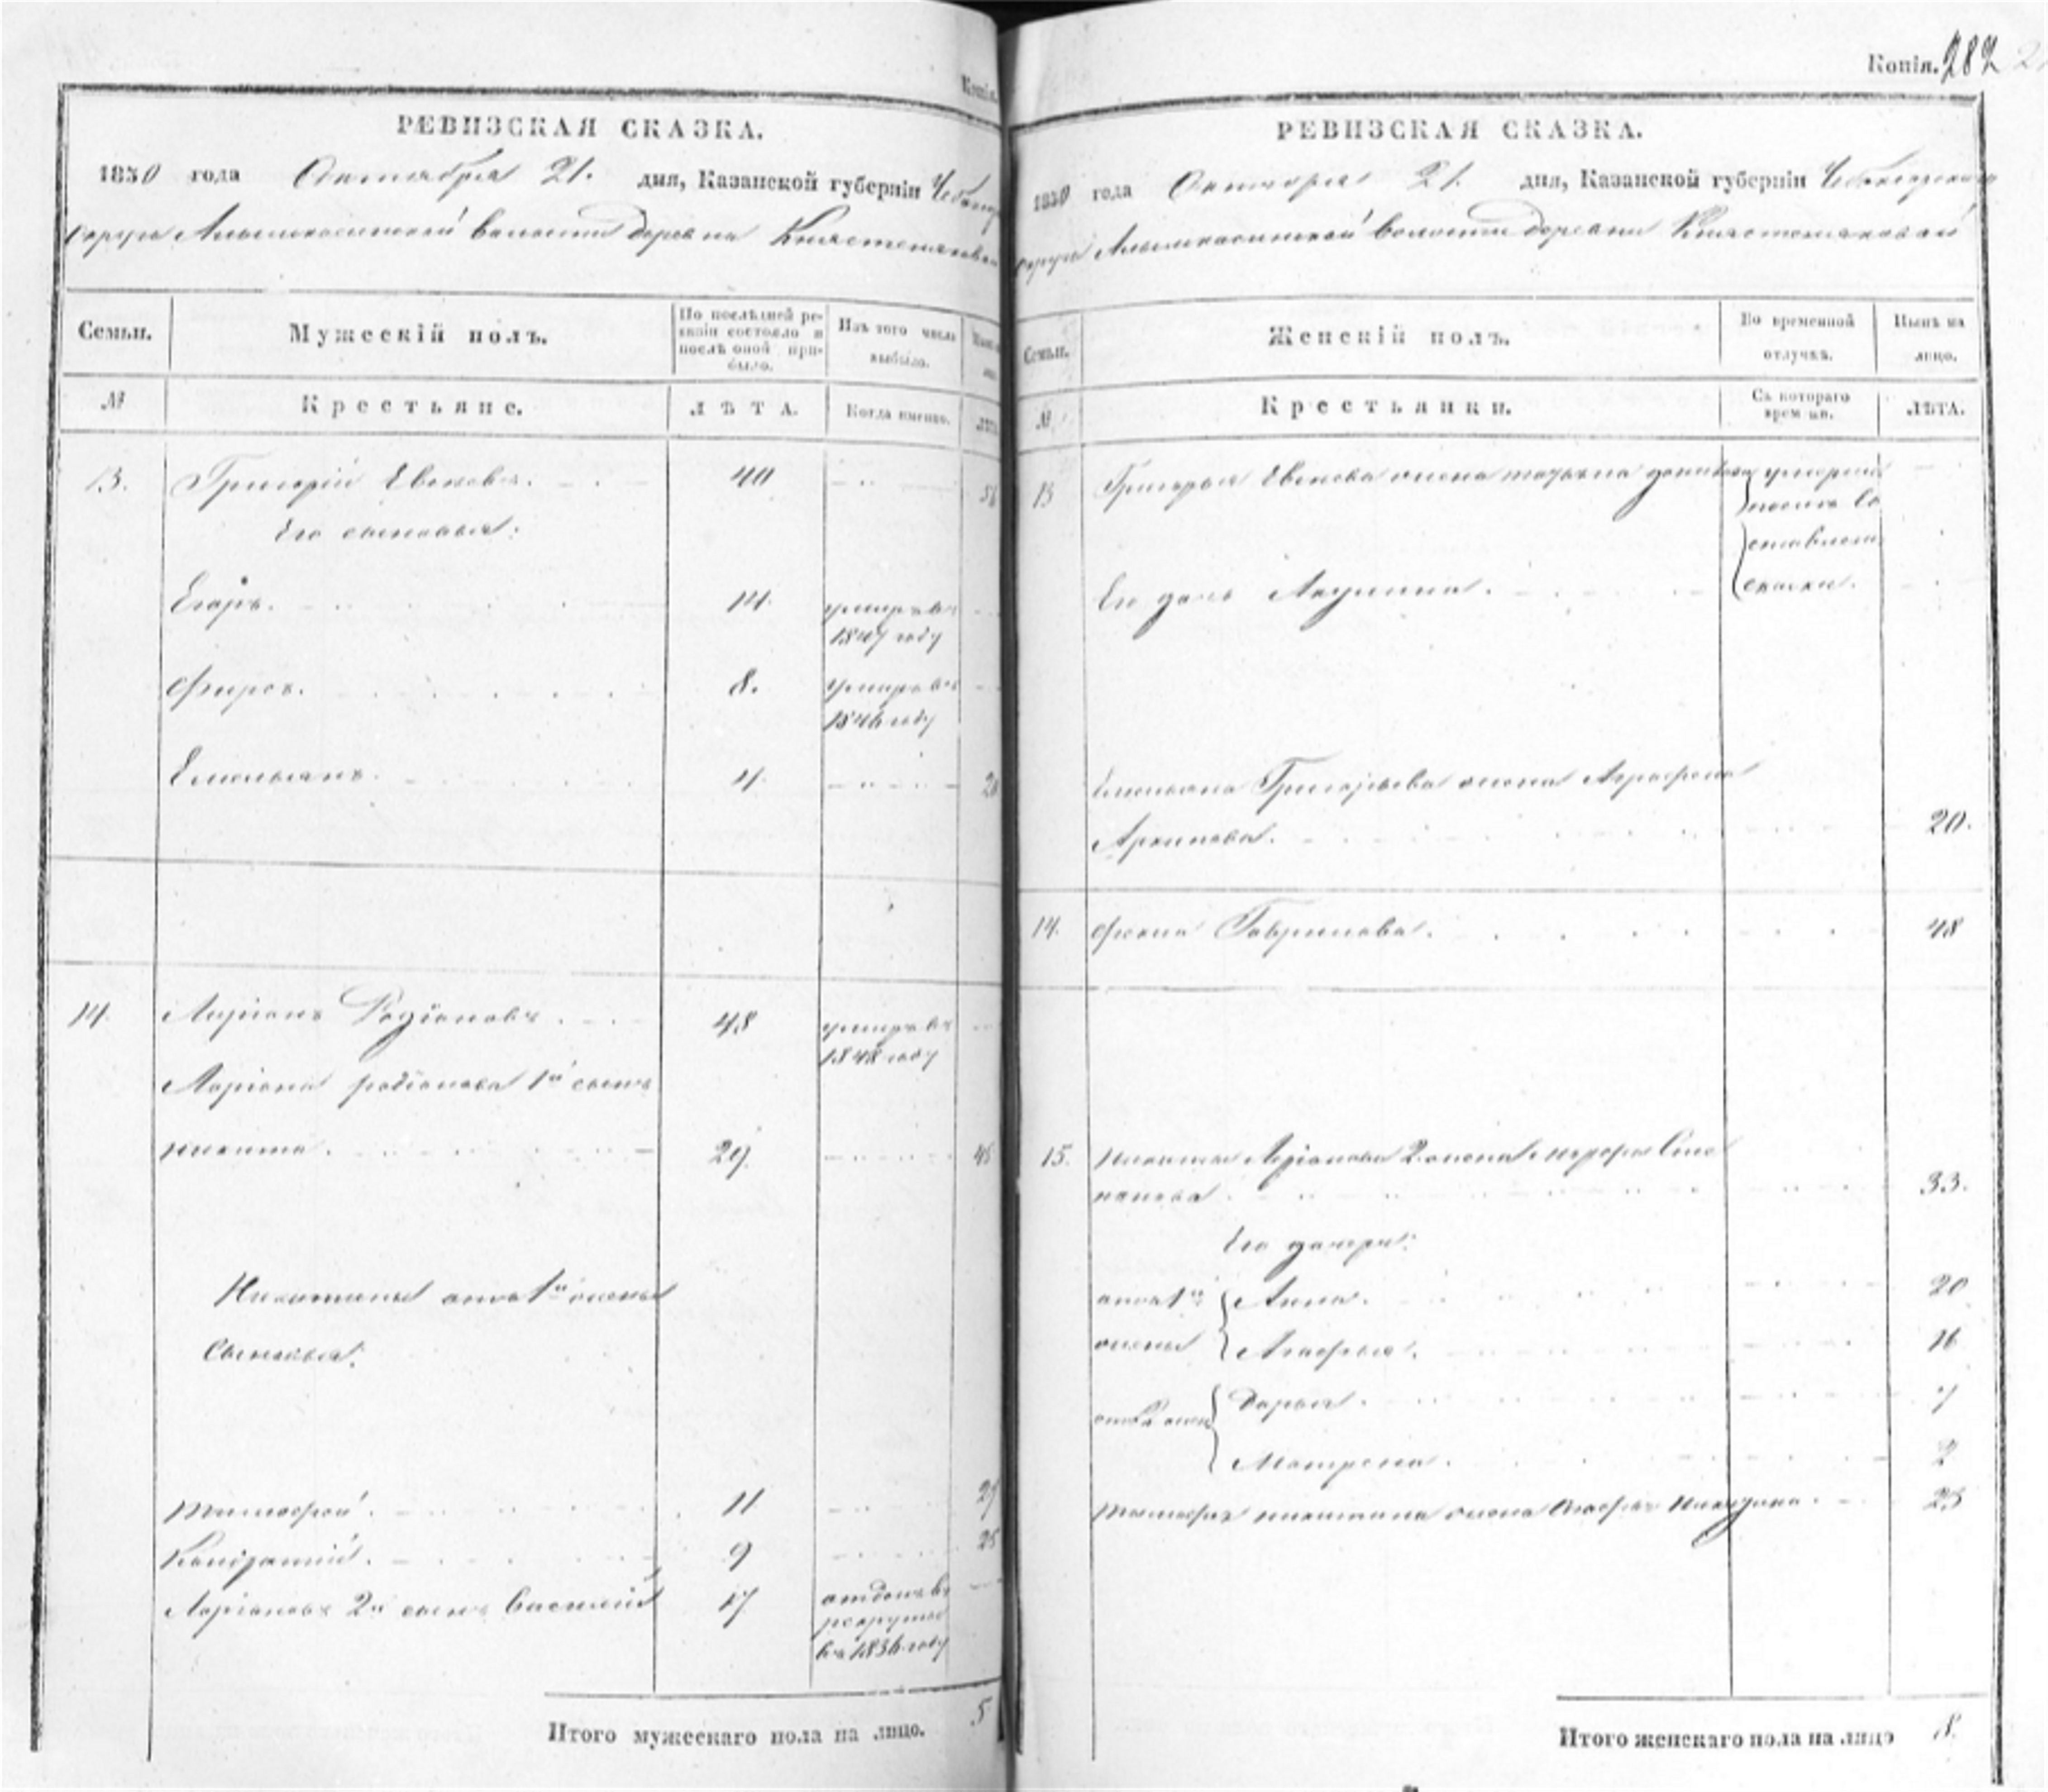 Копія.
РЕВИЗСКАЯ СКАЗКА.
1850 года Октября 21. дня, Казанской губерніи Чебоксар
округа Алымкасинской волости деревни
Семьи.
Мужескій полъ.
По послѣдней ре-
визіи состояло и
послѣ оной при-
было.
Изъ того числа
выбыло.
№
Крестьяне.
ЛѢТА.
Когда именно.
13. Григорій Евсковъ. 40
Его сыновья:
Егоръ. 14. умеръ въ
1847 году
8. умеръ въ
1846 году
Емельянъ. 4.
14. Ларіонъ Родіоновъ. 48 умеръ въ
1848 году
Ларіона родіонова 1й сынъ
никита. 29. 45
Никитины отъ 1й жены
Сыновья:
тимофей. 11
9 25
Ларіоновъ 2й сынъ Василій 17 отданъ въ
рекруты
въ 1836 году
Итого мужескаго пола на лицо. 5
Копія. 282
РЕВИЗСКАЯ СКАЗКА.
1850 года Октября 21. дня, Казанской губерніи Чебоксарскаго
округа Алымкасинской волости деревни
Семьи.
Женскій полъ.
Во временной
отлучкѣ.
Нынѣ на
лицо.
№
Крестьянки.
Съ котораго
времени.
ЛѢТА.
13 Григорья Евскова жена татьяна
Его дочь Акулина.
сказки.
Емельяна Григорьева жена Аграфена
Архипова. 20.
14. Фекла Гаврилова. 48
15. Никиты Ларіонова 2 жена Сте
панова. 33.
Его дочери:
отъ 1й Анна. 20
жены Агафья. 16
Дарья. 7
Матрена. 2
никитина жена 25
Итого женскаго пола на лицо 8.